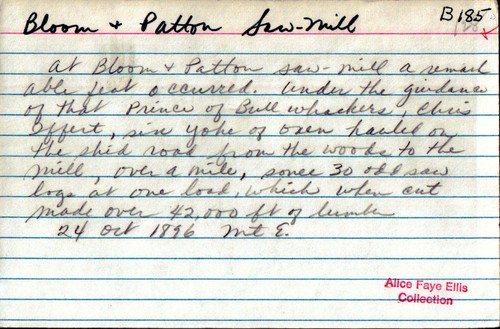 B 185
Bloom + Patton Saw-Mill
At Bloom + Patton saw-mill a remark
able feat occurred. Under the guidance
of that Prince of Bull whackers, Chris
Effert, six yoke of oxen hauled on
the skid road from the woods to the
mill, over a mile, some 30 odd saw
logs at one load, which when cut
made over 42,000 ft of lumber
24 Oct 1896 Mt E.
Alice Faye Ellis
Collection